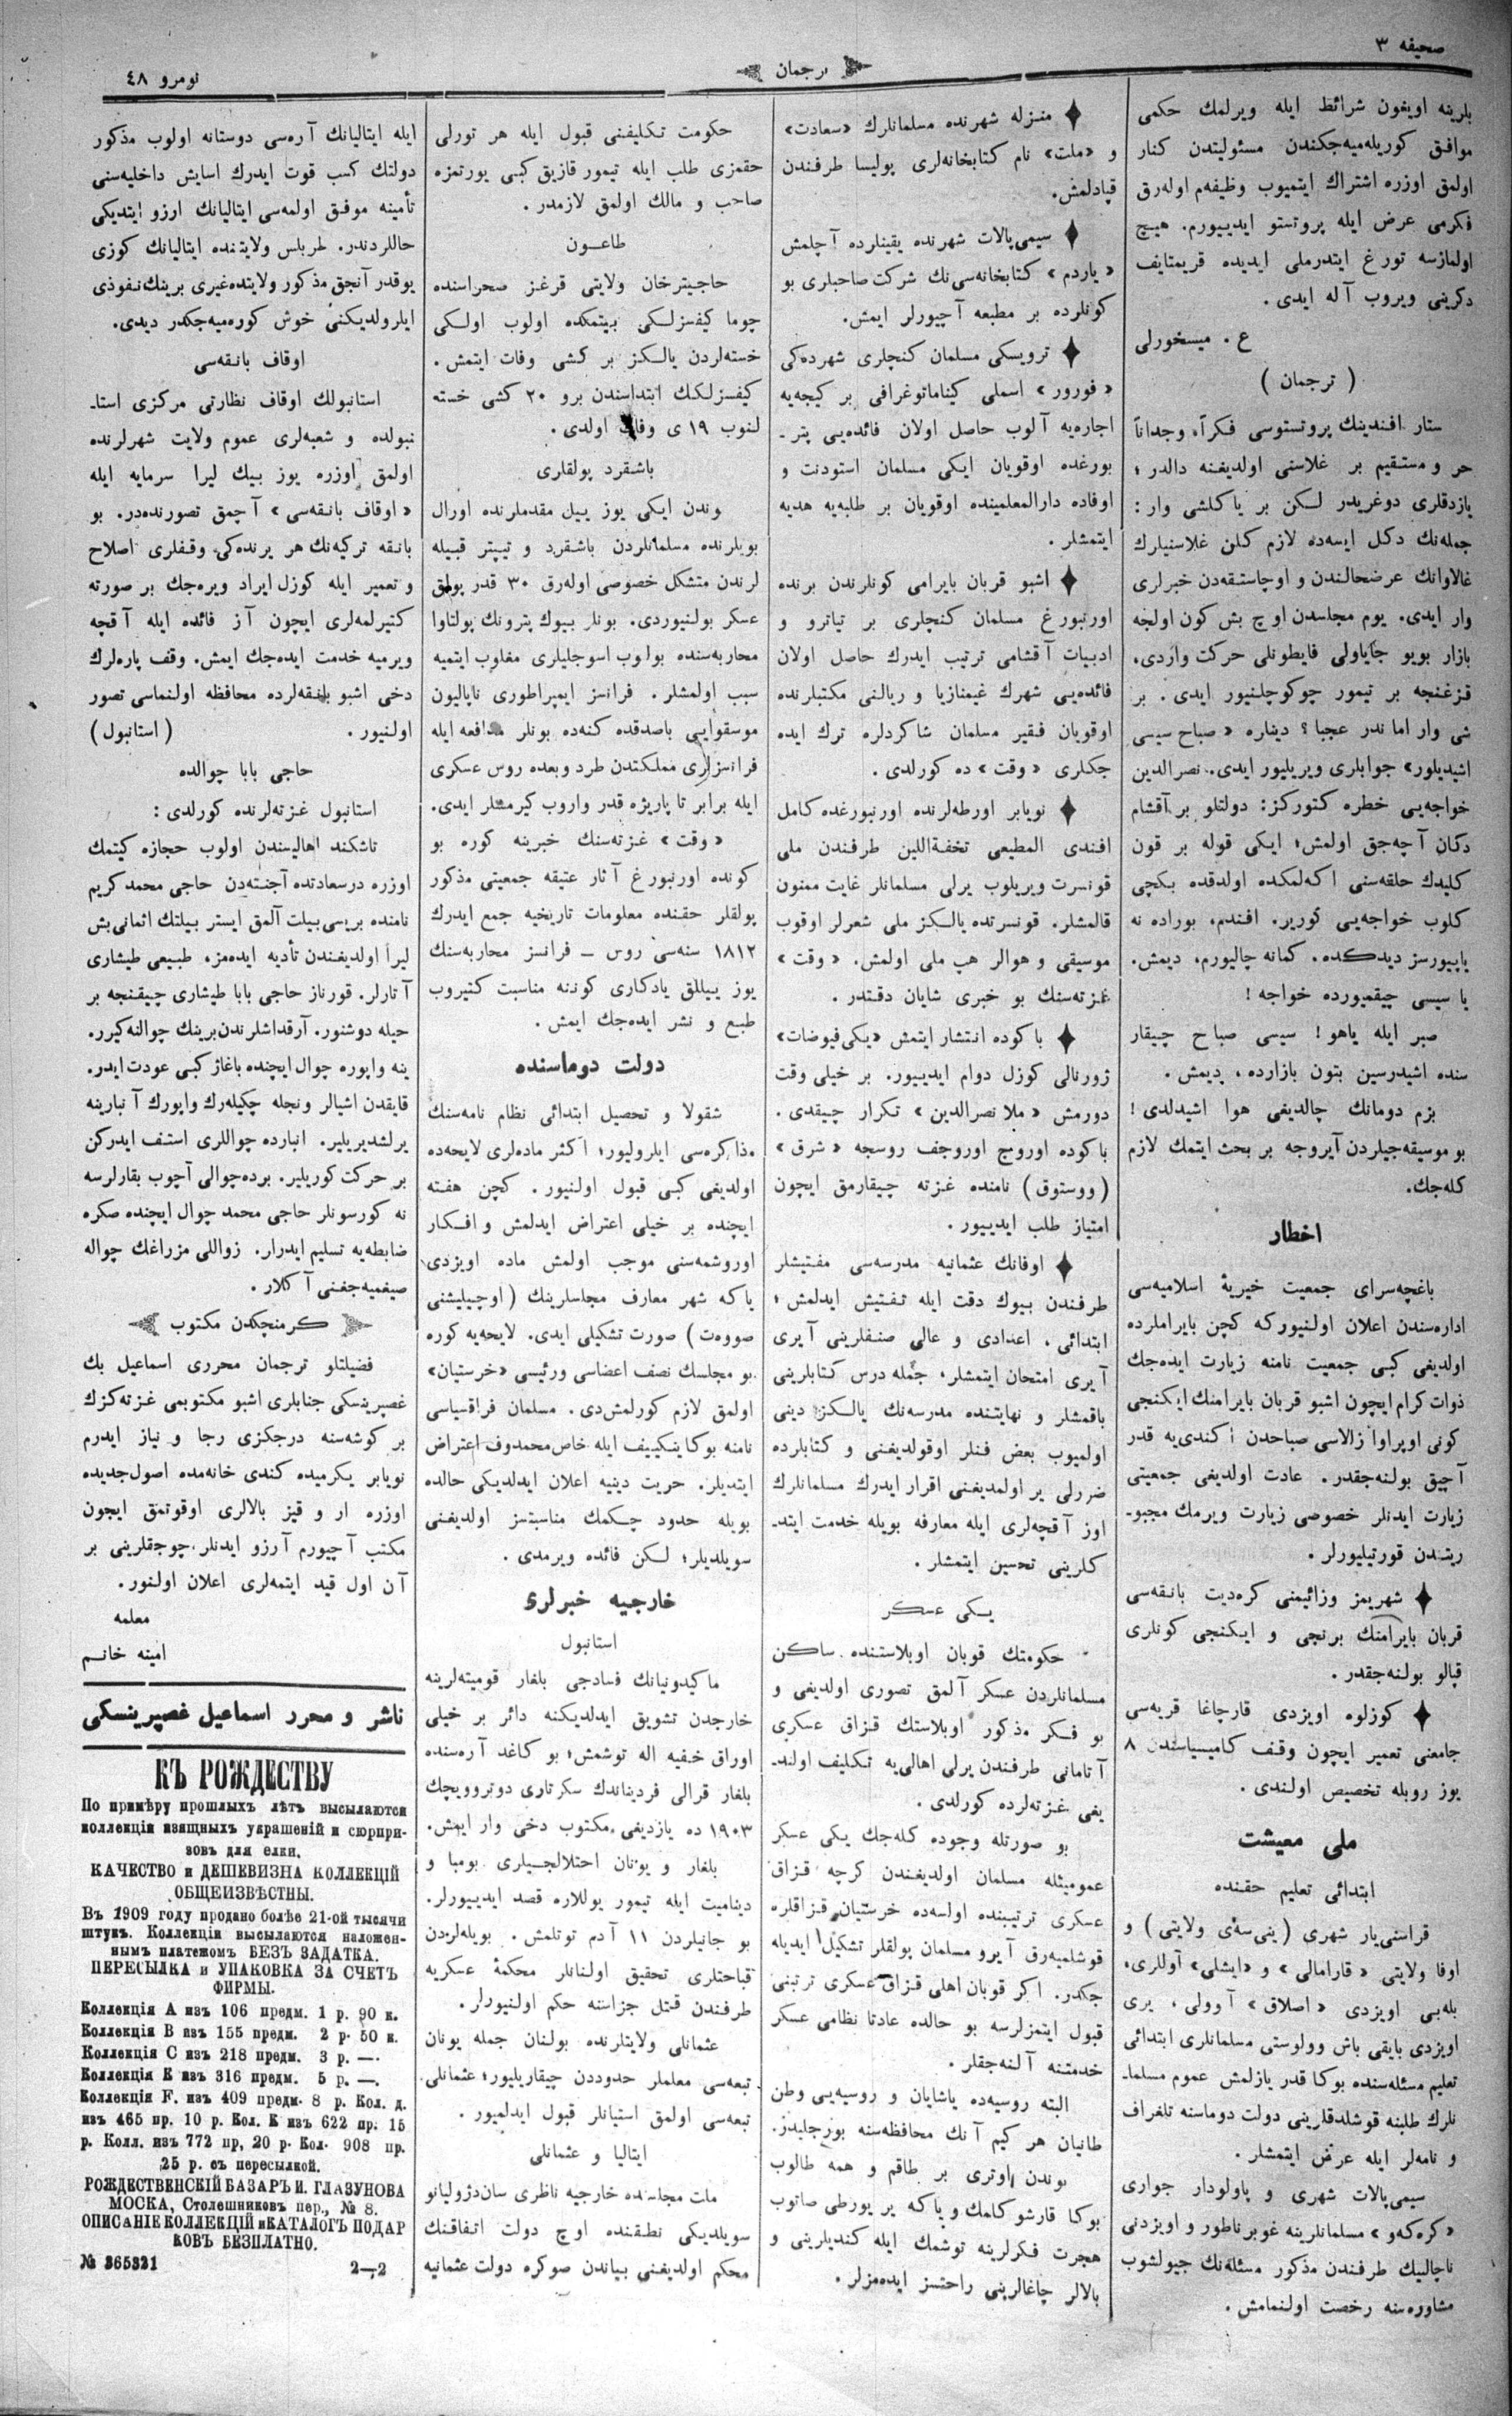 صحیفه ٣
ترجمان
نومرو ٤٨
بلرینه اویغون شرائط ایله ویرلمك حکمی
موافق کوریله‌میه‌جکندن مسئولیتدن کنار
اولمق اوزره اشتراك ایتمیوب وظیفه‌م اوله‌رق
فکرمی عرض ایله پروتستو ایدییورم. هیچ
اولمازسه تورغ ایتدرملی ایدیده قریمتایف
دکرینی ویروب آله ایدی.
ع. میسخورلی
( ترجمان )
ستار افندینك پروتستوسی فکراً، وجداناً
حر و مستقیم بر غلاسنی اولدیغنه دالدر؛
یازدقلری دوغریدر لکن بر یاکلشی وار:
جمله‌نك دکل ایسه‌ده لازم کلن غلاسنیلرك
غالاوانك عرضحالندن و اوچاستقه‌دن خبرلری
وار ایدی. یوم مجلسدن اوچ بش کون اولجه
بازار بویو جایاولی فایطونلی حرکت واردی.
قزغنجه بر تیمور چوکوچلنیور ایدی. بر
شی وار اما ندر عجبا؟ دیناره «صباح سیسی
اشیدیلور» جوابلری ویریلیور ایدی. نصرالدین
خواجه‌یی خطره کتورکز: دولتلو بر آقشام
دکان آچه‌جق اولمش؛ ایکی قوله بر قون
کلیدك حلقه‌سنی اکه‌لمکده اولدقده بکچی
کلوب خواجه‌یی کوریر. افندم، بوراده نه
یاپیورسز دیدکده. کمانه چالیورم، دیمش.
یا سیسی چیقمیورده خواجه!
صبر ایله یاهو! سیسی صباح چیقار
سنده اشیدرسین بتون بازارده، دیمش.
بزم دومانك چالدیغی هوا اشیدلدی!
بو موسیقه‌جیلردن آیروجه بر بحث ایتمك لازم
کله‌جك.
اخطار
باغچه‌سرای جمعیت خیریهٔ اسلامیه‌سی
اداره‌سندن اعلان اولنیورکه کچن بایراملرده
اولدیغی کبی جمعیت نامنه زیارت ایده‌جك
ذوات کرام ایچون اشبو قربان بایرامنك ایکنجی
کونی اوپراوا زالاسی صباحدن اکندی‌یه قدر
آچیق بولنه‌جقدر. عادت اولدیغی جمعیتی
زیارت ایدنلر خصوصی زیارت ویرمك مجبو-
ریتدن قورتیلیورلر.
شهریمز وزائیمنی کره‌دیت بانقه‌سی
قربان بایرامنك برنچی و ایکنجی کونلری
قپالو بولنه‌جقدر.
کوزلوه اویزدی قارچاغا قریه‌سی
جامعنی تعمیر ایچون وقف کامیسیاسندن ٨
یوز روبله تخصیص اولندی.
ملی معیشت
ابتدائی تعلیم حقنده
قراسنی‌یار شهری (ینی‌سه‌ی ولایتی) و
اوفا ولایتی «قارامالی» و «ایشلی» آوللری،
بله‌بی اویزدی «اصلاق» آوولی، بری
اویزدی بایقی باش وولوستی مسلمانلری ابتدائی
تعلیم مسئله‌سنده بوکا قدر یازلمش عموم مسلما-
نلرك طلبنه قوشلدقلرینی دولت دوماسنه تلغراف
و نامه‌لر ایله عرض ایتمشلر.
سیمی‌پالات شهری و پاولودار جواری
«کره‌که‌و» مسلمانلرینه غوبرناطور و اویزدنی
ناچالنیك طرفندن مذکور مسئله‌نك جیولشوب
مشاوره‌سنه رخصت اولنمامش.
منزله شهرنده مسلمانلرك «سعادت»
و «ملت» نام کتابخانه‌لری پولیسا طرفندن
قپادلمش.
سیمی‌پالات شهرنده یقینلرده آچلمش
«یاردم» کتابخانه‌سی‌نك شرکت صاحبلری بو
کونلرده بر مطبعه آچیورلر ایمش.
ترویسکی مسلمان کنچلری شهرده‌کی
«فورور» اسملی کیناماتوغرافی بر کیجه‌یه
اجاره‌یه آلوب حاصل اولان فائده‌یی پتر-
بورغده اوقویان ایکی مسلمان استودنت و
اوفاده دارالمعلمینده اوقویان بر طلبه‌یه هدیه
ایتمشلر.
اشبو قربان بایرامی کونلرندن برنده
اورنبورغ مسلمان کنچلری بر تیاترو و
ادبیات آقشامی ترتیب ایدرك حاصل اولان
فائده‌یی شهرك غیمنازیا و ریالنی مکتبلرنده
اوقویان فقیر مسلمان شاکردلره ترك ایده
جکلری «وقت» ده کورلدی.
نویابر اورطه‌لرنده اورنبورغده کامل
افندی المطیعی تخفةاللین طرفندن ملی
قونسرت ویریلوب یرلی مسلمانلر غایت ممنون
قالمشلر. قونسرتده یالکز ملی شعرلر اوقوب
موسیقی و هوالر هپ ملی اولمش. «وقت»
غزته‌سنك بو خبری شایان دقتدر.
باکوده انتشار ایتمش «یکی فیوضات»
ژورنالی کوزل دوام ایدییور. بر خیلی وقت
دورمش «ملا نصرالدین» تکرار چیقدی.
باکوده اوروج اوروجف روسجه «شرق»
(ووستوق) نامنده غزته چیقارمق ایچون
امتیاز طلب ایدییور.
اوفانك عثمانیه مدرسه‌سی مفتیشلر
طرفندن بیوك دقت ایله تفتیش ایدلمش؛
ابتدائی، اعدادی و عالی صنفلرینی آیری
آیری امتحان ایتمشلر، جمله درس کتابلرینی
باقمشلر و نهایتنده مدرسه‌نك یالکز دینی
اولمیوب بعض فنلر اوقولدیغنی و کتابلرده
ضررلی یر اولمدیغنی اقرار ایدرك مسلمانلرك
اوز آقچه‌لری ایله معارفه بویله خدمت ایتد-
کلرینی تحسین ایتمشلر.
یکی عسکر
حکومتك قوبان اوبلاستنده ساکن
مسلمانلردن عسکر آلمق تصوری اولدیغی و
بو فکر مذکور اوبلاستك قزاق عسکری
آتامانی طرفندن یرلی اهالی‌یه تکلیف اولند-
یغی غزته‌لرده کورلدی.
بو صورتله وجوده کله‌جك یکی عسکر
عمومیتله مسلمان اولدیغندن کرچه قزاق
عسکری ترتیبنده اولسه‌ده خرستیان قزاقلره
قوشلمیه‌رق آیرو مسلمان پولقلر تشکیل ایدیله
جکدر. اکر قوبان اهلی قزاق عسکری ترتبنی
قبول ایتمزلرسه بو حالده عادتا نظامی عسکر
خدمتنه آلنه‌جقلر.
البته روسیه‌ده یاشایان و روسیه‌یی وطن
طانیان هر کیم آنك محافظه‌سنه بورجلیدز.
بوندن اوتری بر طاقم و همه طالوب
بوکا قارشو کلمك و یاکه یر یورطی صاتوب
هجرت فکرلرینه توشمك ایله کندیلرینی و
بالالر چاغالرینی راحتسز ایده‌مزلر.
حکومت تکلیفنی قبول ایله هر تورلی
حقمزی طلب ایله تیمور قازیق کبی یورتمزه
صاحب و مالك اولمق لازمدر.
طاعون
حاجیترخان ولایتی قرغز صحراسنده
چوما کیفسزلکی بیتمکده اولوب اولکی
خسته‌لردن یالکز بر کشی وفات ایتمش.
کیفسزلکك ابتداسندن برو ٢٠ کشی خسته
لنوب ١٩ ی وفات اولدی.
باشقرد پولقلری
وندن ایکی یوز ییل مقدملرنده اورال
بویلرنده مسلمانلردن باشقرد و تیپتر قبیله
لرندن متشکل خصوصی اوله‌رق ٣٠ قدر پولق
عسکر بولنیوردی. بونلر بیوك پترونك پولتاوا
محاربه‌سنده بولوب اسوجلیلری مغلوب ایتمیه
سبب اولمشلر. فرانسز ایمپراطوری ناپالیون
موسقوایی باصدقده کنه‌ده بونلر مدافعه ایله
فرانسزلری مملکتدن طرد و بعده روس عسکری
ایله برابر تا پاریژه قدر واروب کیرمشلر ایدی.
«وقت» غزته‌سنك خبرینه کوره بو
کونده اورنبورغ آثار عتیقه جمعیتی مذکور
پولقلر حقنده معلومات تاریخیه جمع ایدرك
١٨١٢ سنه‌سی روس ـ فرانسز محاربه‌سنك
یوز ییللق یادکاری کوننه مناسبت کتیروب
طبع و نشر ایده‌جك ایمش.
دولت دوماسنده
شقولا و تحصیل ابتدائی نظام نامه‌سنك
مذاکره‌سی ایلرولیور؛ اکثر ماده‌لری لایحه‌ده
اولدیغی کبی قبول اولنیور. کچن هفته
ایچنده بر خیلی اعتراض ایدلمش و افکار
اوروشمه‌سنی موجب اولمش ماده اویزدی
یاکه شهر معارف مجلسلرینك (اوچیلیشنی
صووه‌ت) صورت تشکیلی ایدی. لایحه‌یه کوره
بو مجلسك نصف اعضاسی ورئیسی «خرستیان»
اولمق لازم کورلمش‌دی. مسلمان فراقسیاسی
نامنه بوکا ینکییف ایله خاص‌محمدوف اعتراض
ایتدیلر. حریت دینیه اعلان ایدلدیکی حالده
بویله حدود چکمك مناسبتسز اولدیغنی
سویلدیلر؛ لکن فائده ویرمدی.
خارجیه خبرلری
استانبول
ماکیدونیانك فسادجی بلغار قومیته‌لرینه
خارجدن تشویق ایدلدیکنه دائر بر خیلی
اوراق خفیه اله توشمش؛ بو کاغد آره‌سنده
بلغار قرالی فردیناندك سکرتاری دوتروویچك
١٩٠٣ ده یازدیغی مکتوب دخی وار ایمش.
بلغار و یونان احتلالجیلری بومبا و
دینامیت ایله تیمور یوللاره قصد ایدییورلر.
بو جانیلردن ١١ آدم توتلمش. بویله‌لردن
قباحتلری تحقیق اولنانلر محکمهٔ عسکریه
طرفندن قتل جزاسنه حکم اولنیورلر.
عثمانلی ولایتلرنده بولنان جمله یونان
تبعه‌سی معلملر حدوددن چیقاریلیور؛ عثمانلی
تبعه‌سی اولمق استیانلر قبول ایدلمیور.
ایتالیا و عثمانلی
ملت مجلسنده خارجیه ناظری سان‌دژولیانو
سویلدیکی نطقنده اوچ دولت اتفاقنك
محکم اولدیغنی بیاندن صوکره دولت عثمانیه
ایله ایتالیانك آره‌سی دوستانه اولوب مذکور
دولتك کسب قوت ایدرك اسایش داخلیه‌سنی
تأمینه موفق اولمه‌سی ایتالیانك ارزو ایتدیکی
حاللردندر. طربلس ولایتنده ایتالیانك کوزی
یوقدر آنجق مذکور ولایتده غیری برینك نفوذی
ایلرولدیکنی خوش کوره‌میه‌جکدر دیدی.
اوقاف بانقه‌سی
استانبولك اوقاف نظارتی مرکزی استا-
نبولده و شعبه‌لری عموم ولایت شهرلرنده
اولمق اوزره یوز بیك لیرا سرمایه ایله
«اوقاف بانقه‌سی» آچمق تصورنده‌در. بو
بانقه ترکیه‌نك هر یرنده‌کی وقفلری اصلاح
و تعمیر ایله کوزل ایراد ویره‌جك بر صورته
کتیرلمه‌لری ایچون آز فائده ایله آقچه
ویرمیه خدمت ایده‌جك ایمش. وقف پاره‌لرك
دخی اشبو بانقه‌لرده محافظه اولنماسی تصور
اولنیور. (استانبول)
حاجی بابا چوالده
استانبول غزته‌لرنده کورلدی:
تاشکند اهالیسندن اولوب حجازه کیتمك
اوزره درسعادتده آجنته‌دن حاجی محمد کریم
نامنده بریسی بیلت آلمق ایستر بیلتك اثمانی بش
لیرا اولدیغندن تأدیه ایده‌مز، طبیعی طیشاری
آتارلر. قورناز حاجی بابا طیشاری چیقنجه بر
حیله دوشنور. آرقداشلرندن برینك چوالنه کیرر.
ینه واپوره چوال ایچنده باغاژ کبی عودت ایدر.
قایقدن اشیالر ونجله چکیله‌رك واپورك آنبارینه
یرلشدیریلیر. انبارده چواللری استف ایدرکن
بر حرکت کوریلیر. برده‌چوالی آچوب بقارلرسه
نه کورسونلر حاجی محمد چوال ایچنده صکره
ضابطه‌یه تسلیم ایدرار. زواللی مزراغك چواله
صیغمیه‌جغنی آکلار.
کرمنچکدن مکتوب
فضیلتلو ترجمان محرری اسماعیل بك
غصپرینسکی جنابلری اشبو مکتوبمی غزته‌کزك
بر کوشه‌سنه درجکزی رجا و نیاز ایدرم
نویابر یکرمیده کندی خانه‌مده اصول‌جدیده
اوزره ار و قیز بالالری اوقوتمق ایچون
مکتب آچیورم آرزو ایدنلر چوجقلرینی بر
آن اول قید ایتمه‌لری اعلان اولنور.
معلمه
امینه خانم
ناشر و محرر اسماعیل غصپرینسکی
КЪ РОЖДЕСТВУ
По примѣру прошлыхъ лѣтъ высылаются
коллекціи изящныхъ украшеній и сюрпри-
зовъ для елки.
КАЧЕСТВО и ДЕШЕВИЗНА КОЛЛЕКЦІЙ
ОБЩЕИЗВѢСТНЫ.
Въ 1909 году продано болѣе 21-ой тысячи
штукъ. Коллекціи высылаются наложен-
нымъ платежомъ БЕЗЪ ЗАДАТКА.
ПЕРЕСЫЛКА и УПАКОВКА ЗА СЧЕТЪ
ФИРМЫ.
Коллекція А изъ 106 предм. 1 р. 90 к.
Коллекція В изъ 155 предм. 2 р. 50 к.
Коллекція С изъ 218 предм. 3 р. —.
Коллекція Е изъ 316 предм. 5 р. —.
Коллекція F. изъ 409 предм. 8 р. Кол. д.
изъ 465 пр. 10 р. Кол. К изъ 622 пр. 15
р. Колл. изъ 772 пр, 20 р. Кол. 908 пр.
25 р. съ пересылкой.
РОЖДЕСТВЕНСКІЙ БАЗАРЪ И. ГЛАЗУНОВА
МОСКА, Столешниковъ пер., № 8.
ОПИСАНІЕ КОЛЛЕКЦІЙ и КАТАЛОГЪ ПОДАР
КОВЪ БЕЗПЛАТНО.
№ 365321 2—2